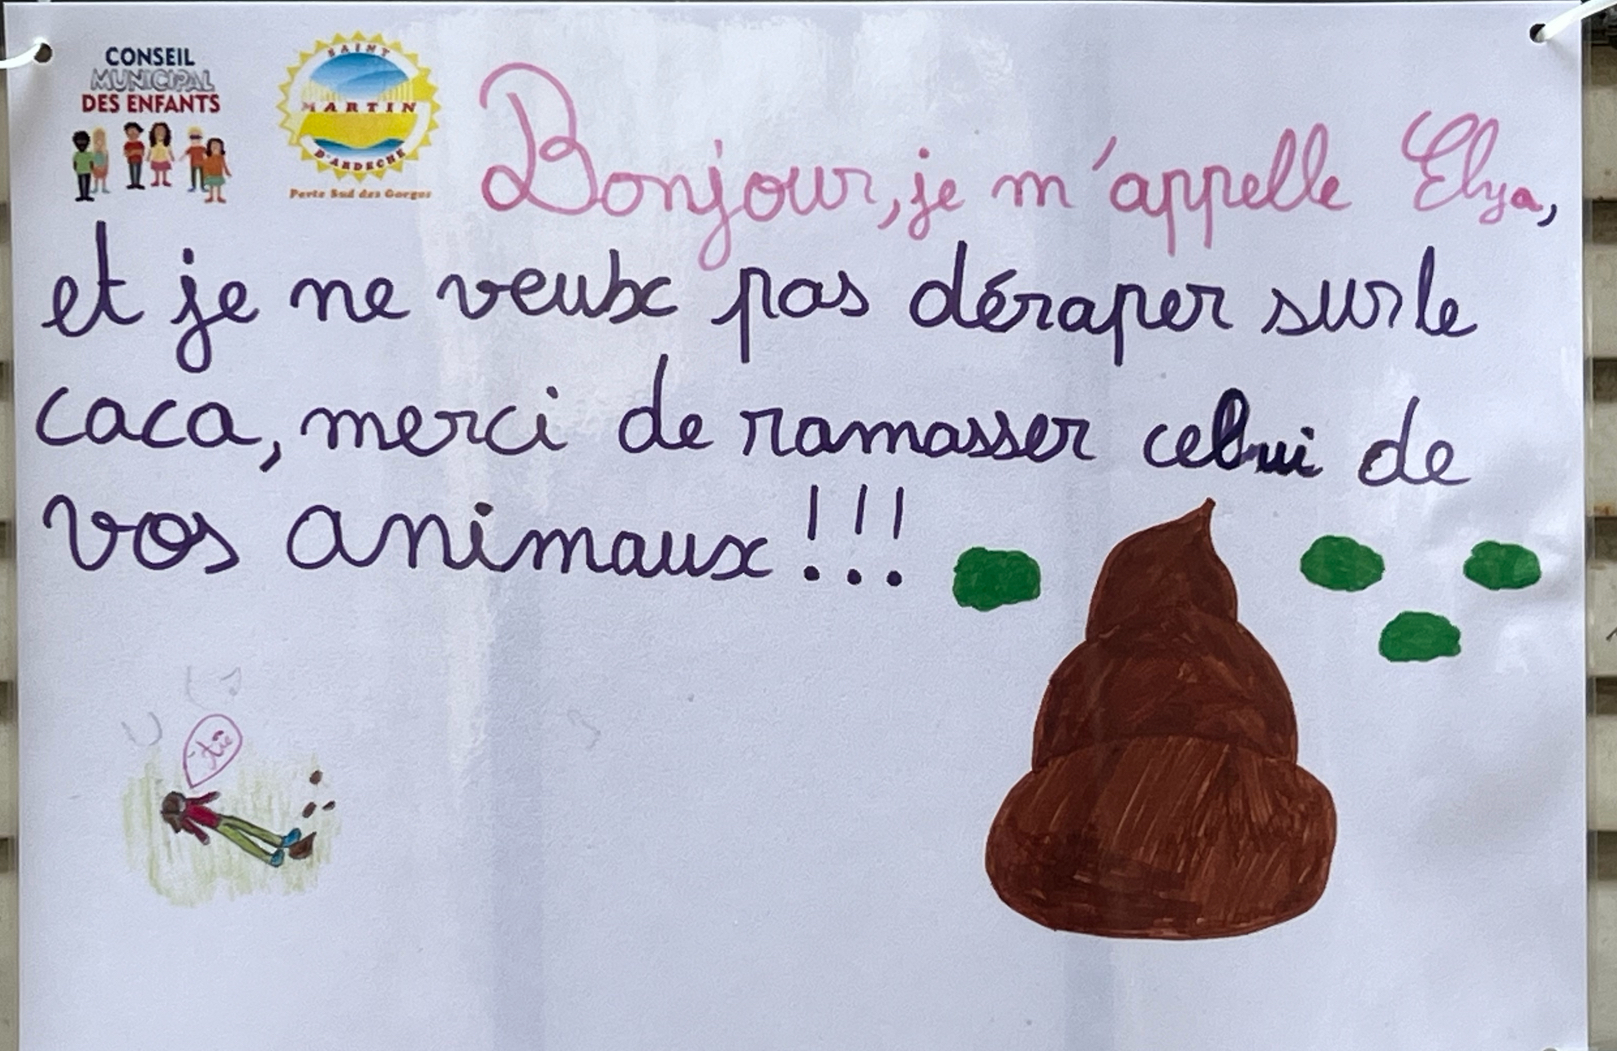 CONSEIL
MUNICIPAL
DES ENFANTS
SAINT
MARTIN
D'ARDECHE
Porte Sud des Gorges
Bonjour, je m'appelle Elya,
et je ne veux pas déraper sur le
caca, merci de ramasser celui de
vos animaux !!!